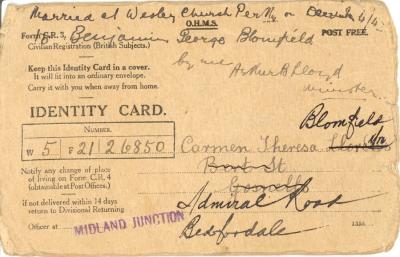 Married at Wesley Church Perth on
O.H.M.S.
Form C.R. 3, to Benjamin George Blomfield POST FREE.
Civilian Registration (British Subjects).
by me
Arthur B. Lloyd
minister
Keep this Identity Card in a cover.
It will fit into an ordinary envelope.
Carry it with you when away from home.
IDENTITY CARD.
NUMBER.
W 5 21 26850
Blomfield
Carmen Theresa
St
Notify any change of place
of living on Form C.R. 4
(obtainable at Post Offices.)
if not delivered within 14 days
return to Divisional Returning
Officer at
MIDLAND JUNCTION
Admiral Road
Bedfordale